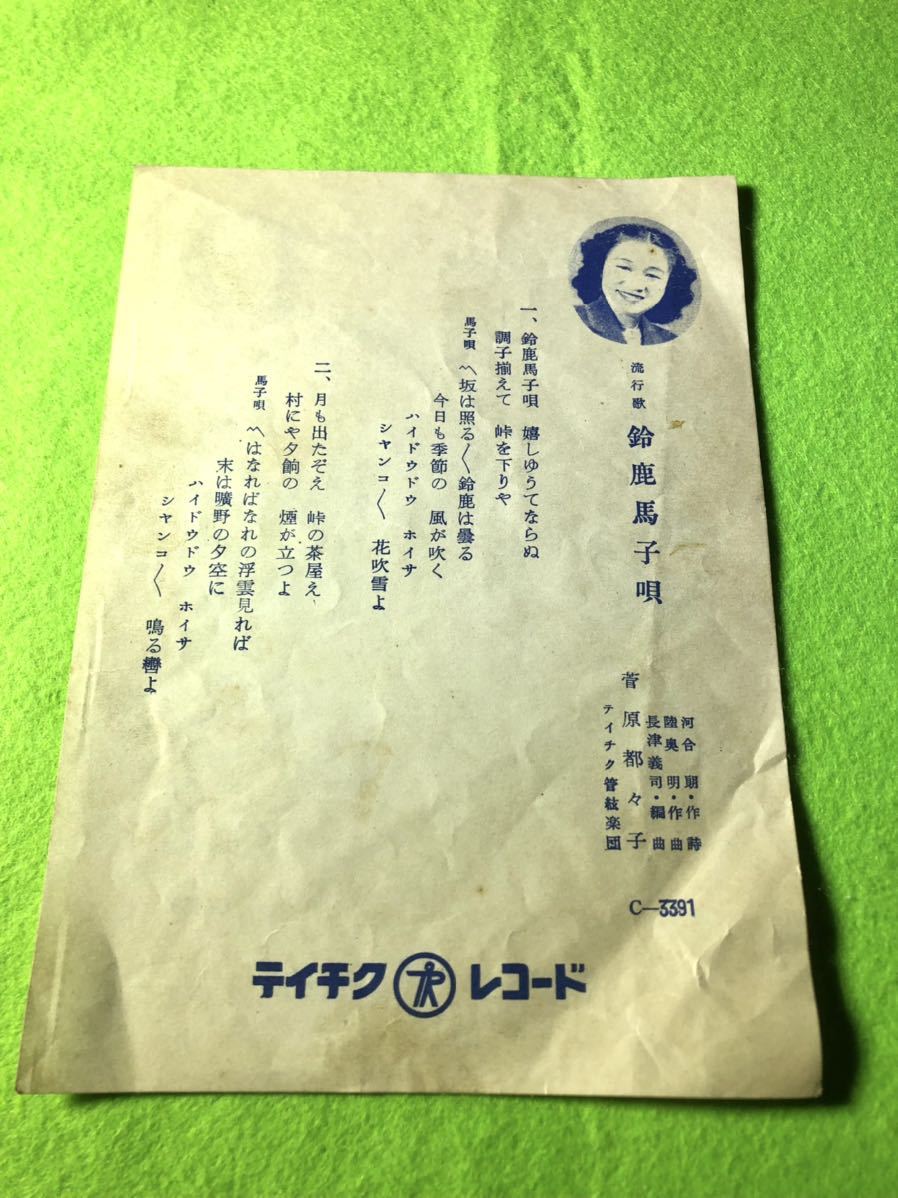 流行歌 鈴鹿馬子唄
河合朗・作詩
陸奥明・作曲
長津義司・編曲
菅原都々子
テイチク管絃楽団
C—3391
一、鈴鹿馬子唄 嬉しゆうてならぬ
調子揃えて 峠を下りや
馬子唄 〽坂は照る〱鈴鹿は曇る
今日も季節の 風が吹く
ハイドウドウ ホイサ
シヤンコ〱 花吹雪よ
二、月も出たぞえ 峠の茶屋え
村にや夕餉の 煙が立つよ
馬子唄 〽はなればなれの浮雲見れば
末は曠野の夕空に
ハイドウドウ ホイサ
シヤンコ〱 鳴る轡よ
テイチク レコード